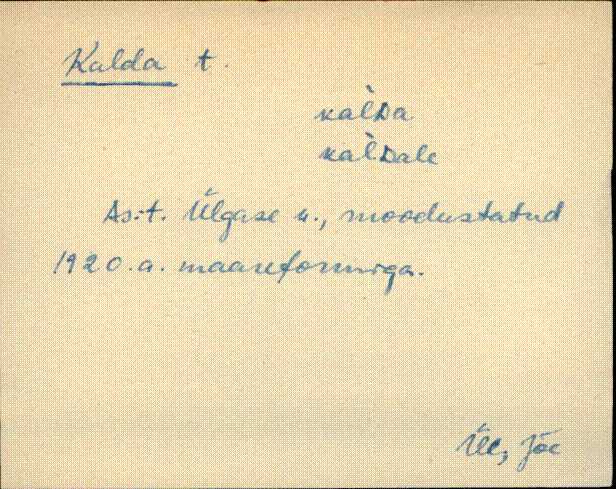 Kalda t.
kàlDa
kàlDale
As.-t. Ülgase k., moodustatud
1920.a. maareformiga.
Jõe